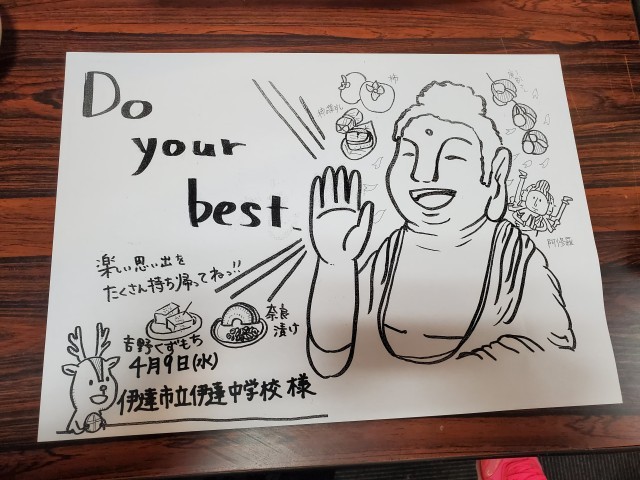 Do
your
best
楽しい思い出を
たくさん持ち帰ってねっ!!
吉野くずもち
奈良
漬け
4月9日(水)
伊達市立伊達中学校 様
柿
阿修羅